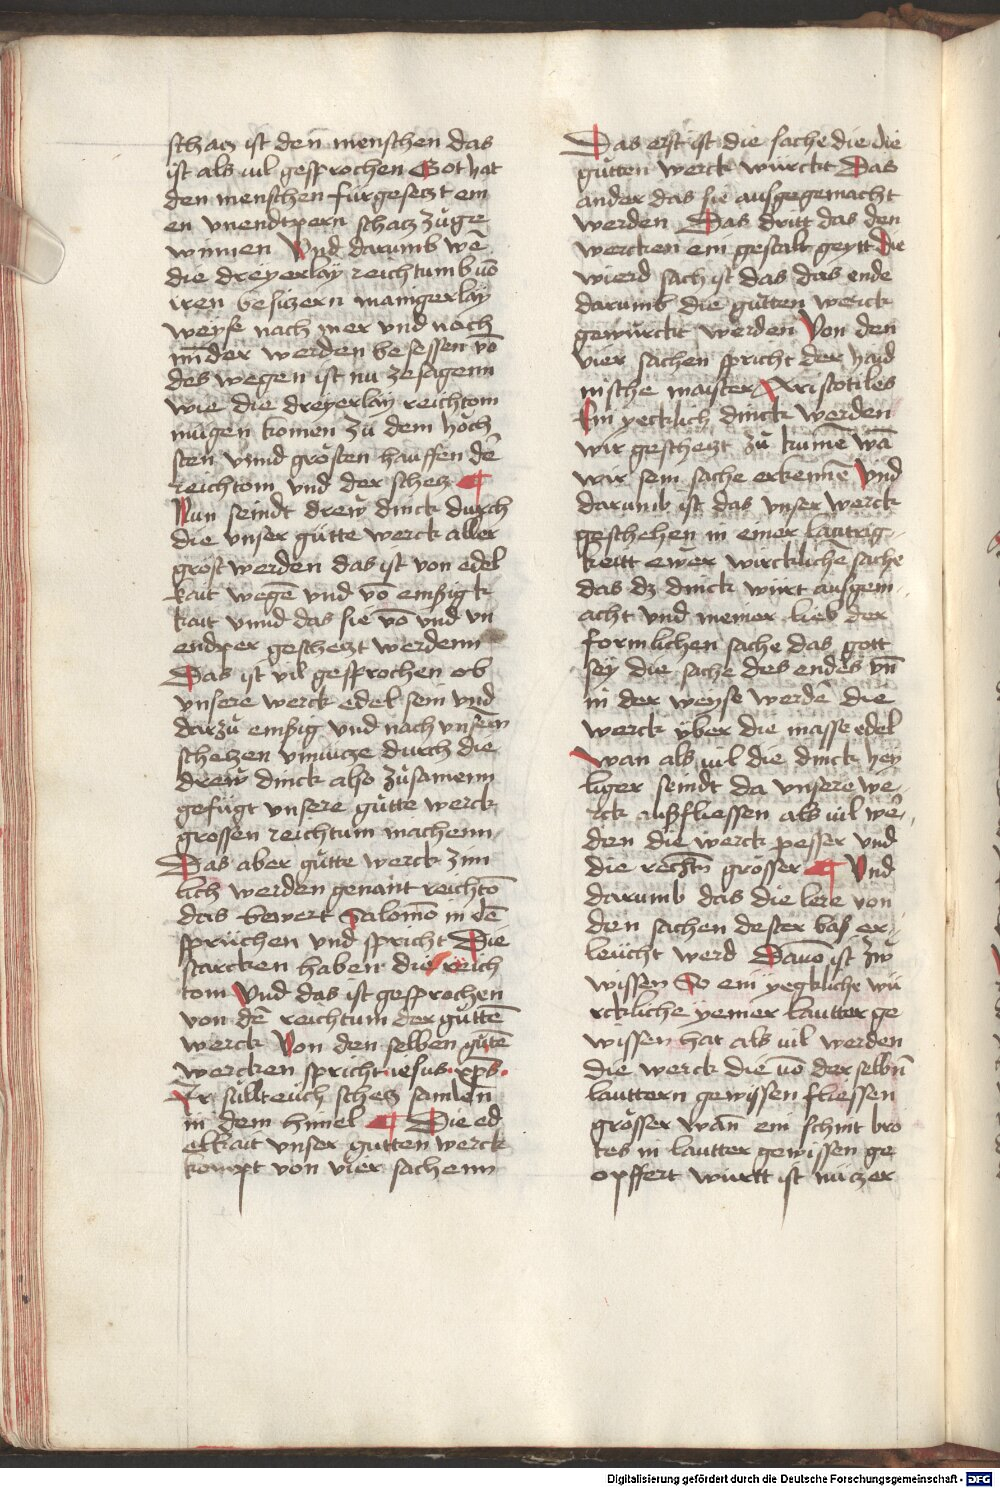 schacz ist den menschen das
ist als uil gesprochen Got hat
den menschen fürgesetzt ein
en vnendtpern schacz zůge
winnen Vnd darumb wē
die dreyerlaÿ reichtumb uō
iren besiczern manigerlaÿ
weyse nach mer vnd nach
mīder werden besessen vō
des wegen ist nu zesagenn
wie die dreyerlaÿ reichtom
mügen komen zů dem hőch
sten vnnd grősten hauffen dē
reichtom vnd der schetz ¶
Nun seindt drew dinck durch
die vnser gůtte werck aller
grőst werden das ist von edel
kait wegē vnd vō emßigk
kait vnnd das sie vō vnd vn
endper geschetzt werdenn
Das ist vil gesprochen ob
vnsere werck edel sein vnd
darzů emßig vnd nach vnsern
schetzen durch die
drew dinck also zůsamenn
gefügt vnsere gůtte werck
grossen reichtum machenn
Das aber gůtte werck zim
lich werden genant reichtō
das bewert Salomō in dē
sprüchen vnd spricht Die
starcken haben die reich
tom Vnd das ist gesprochen
von dē reichtum der gůttē
werck Von den selben gůtē
wercken spricht iesus xp̄s
Ir sůllt eüch schetz samlen
in dem himel ¶ Die ed
elkait vnser gutten werck
kompt von vier sachenn
Das erst ist die sache die die
gůtten werck würckt Das
ander das sie ausgegemacht
werden Das dritt das den
wercken ein gestalt geytt die
wierd sach ist das das ende
darumb die gůtten werck
gewürckt werden Von den
vier sachen spricht der haid
nische maister Aristotiles
Ein yecklich dinck werden
wir geschetzt zů kumē wā
wir sein sache erkennē Vnd
darumb ist das vnser werck
geschehen in einer lautrig
keitt ewer würckliche sache
das dz dinck würt ausgem
acht vnd in einer lieb der
formlichen sache das gott
seÿ die sache des endes vn̄
in der weyse werdē die
werck ÿber die masse edel
wan als uil die dinck hey
liger seindt da vnsere we
rck außfliessen als uil wē
den die werck pesser vnd
die rechtn̄ grősser ¶ Vnd
darumb das die lere von
den sachen dester bas er
leücht werd Dauō ist zů
wissen So ein yegkliche wü
rckliche ÿeiner lautter ge
wissen hat als uil werden
die werck die uō der selbn̄
lauttern gewissen fliessen
grősser wan̄ ein schnit bro
tes in lautter gewissen ge
opffert württ ist nüczer
Digitalisierung gefördert durch die Deutsche Forschungsgemeinschaft - DFG